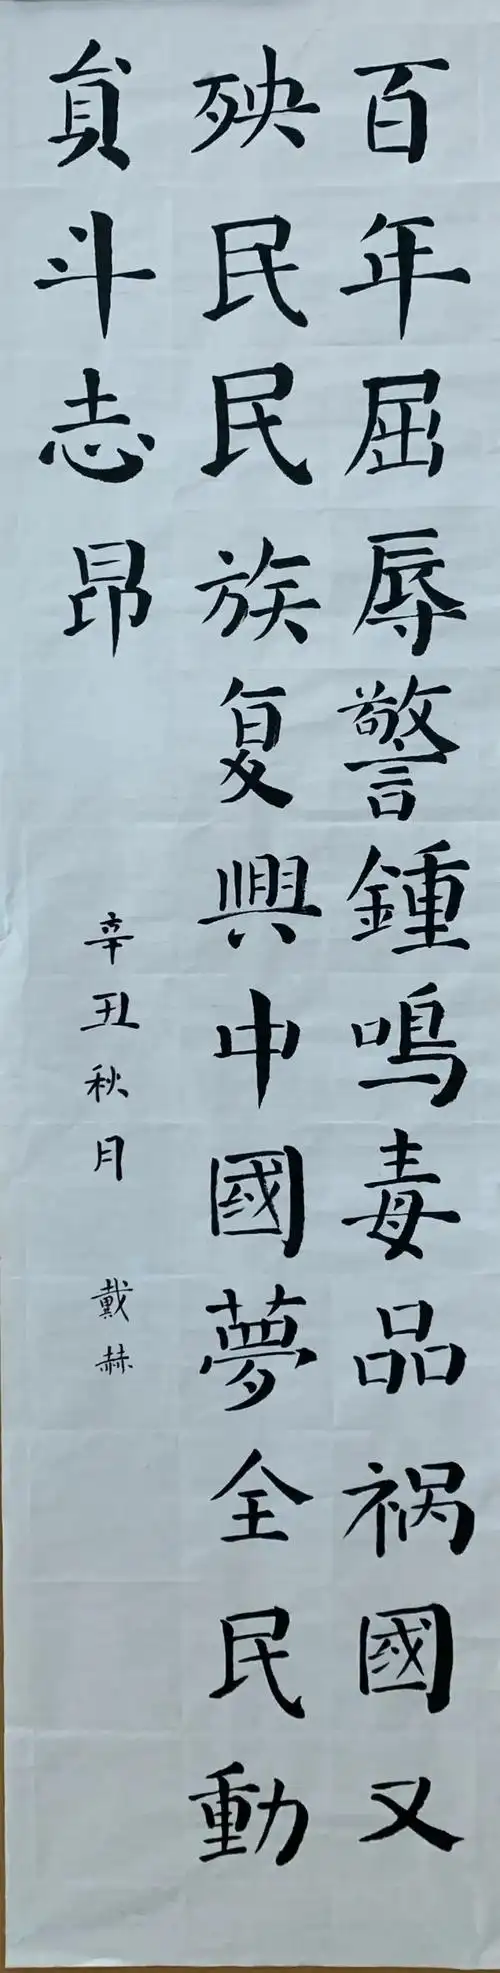 百年屈辱警鍾鳴毒品祸國又
殃民民族复興中國夢全民動
員斗志昂
辛丑秋月 戴赫